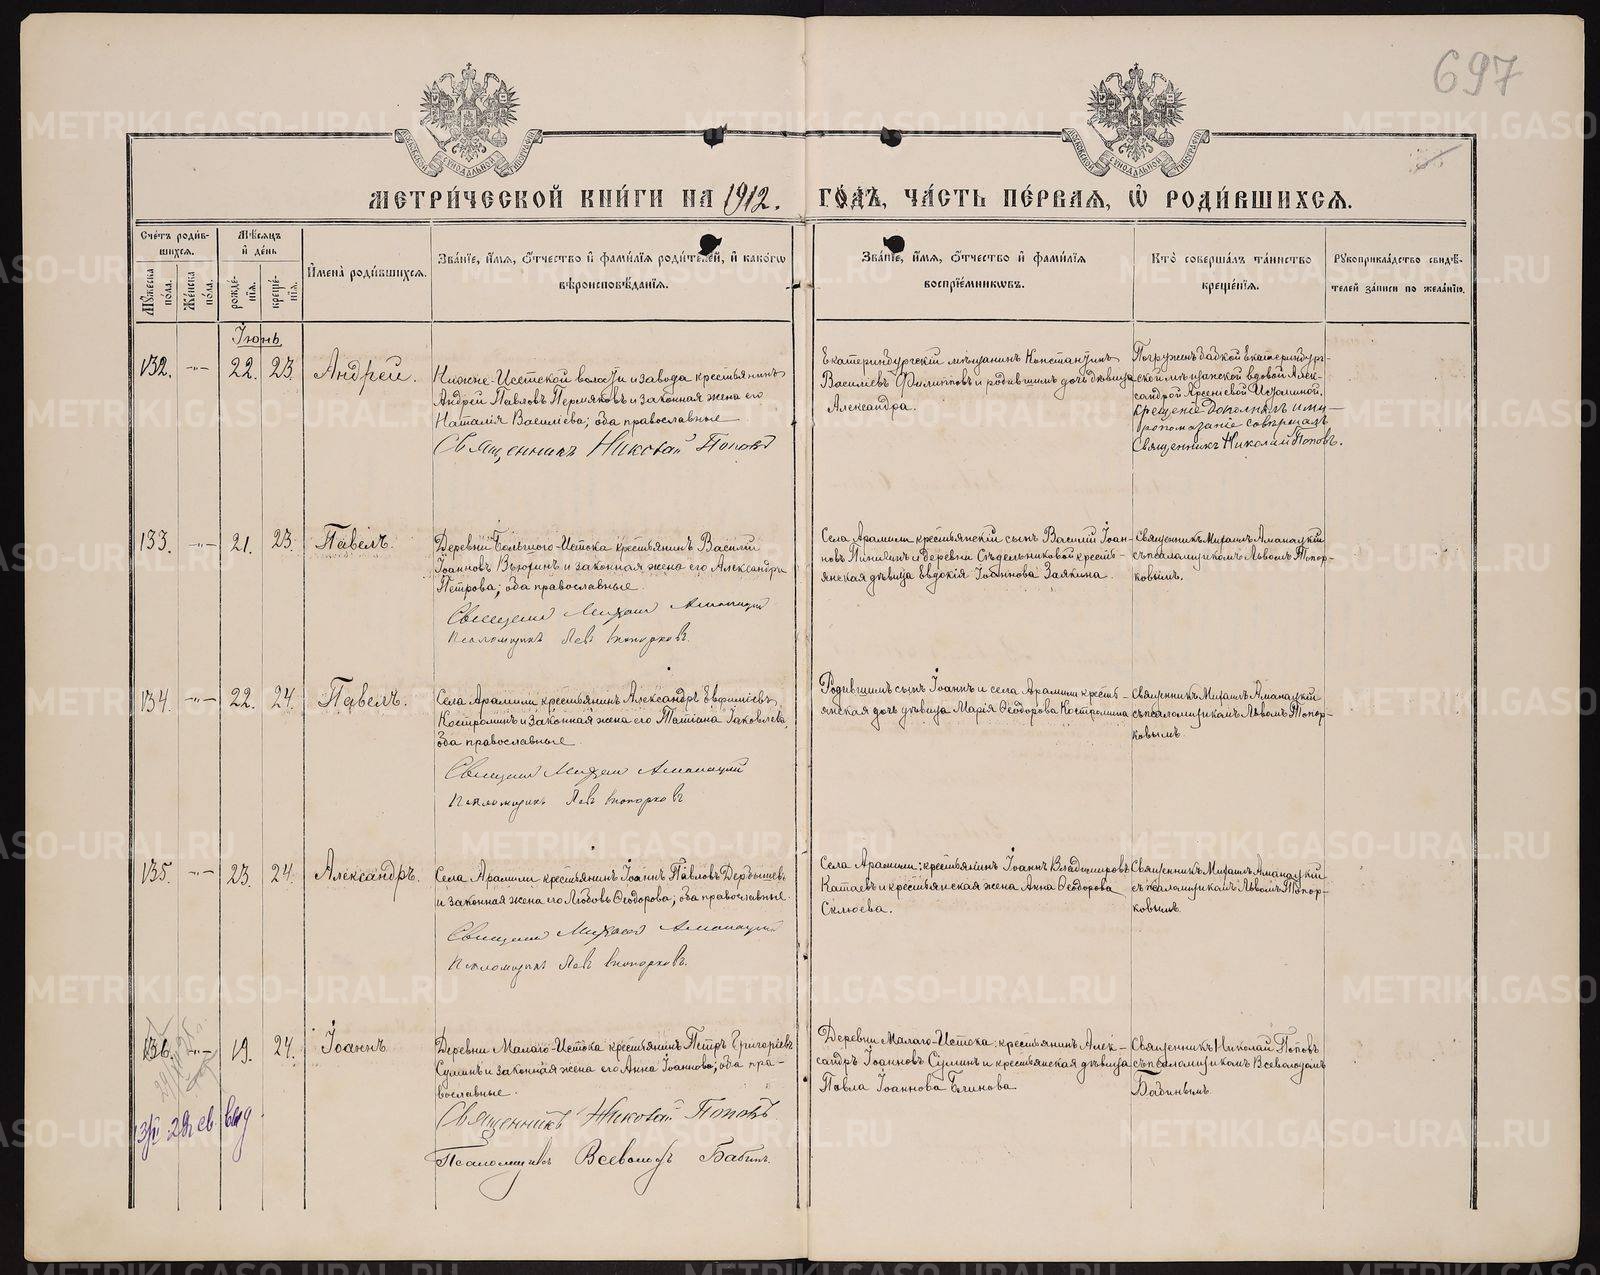 697
МОСКОВСКОЙ СѴНОДАЛЬНОЙ ТИПОГРАФІИ
МОСКОВСКОЙ СѴНОДАЛЬНОЙ ТИПОГРАФІИ
МЕТРИ́ЧЕСКОЙ КНИ́ГИ НА 1912. ГО́ДЪ, ЧА́СТЬ ПЕ́РВАЯ, Ѡ҆ РОДИ́ВШИХСЯ.
Сче́тъ роди́в-
шихся.
Мꙋ́жеска по́ла.
Же́нска по́ла.
Мѣ́сяцъ
и҆ де́нь
рожде́-
нїя.
креще́-
нїя.
И҆мена̀ роди́вшихся.
Зва́нїе, и҆́мя, ѻ҆́тчество и҆ фами́лїя роди́телей, и҆ како́гѡ
вѣроисповѣ́данїя.
Зва́нїе, и҆́мя, ѻ҆́тчество и҆ фами́лїя
воспрїе́мникѡвъ.
Кто̀ соверша́лъ та́инство
креще́нїя.
Рꙋкоприкла́дство свидѣ́-
телей за́писи по жела́нїю.
Іюнь
132. —"— 22. 23. Андрей.
Нижне-Исетской волости и завода крестьянинъ
Андрей Павловъ Пермяковъ и законная жена его
Наталія Васильева; оба православные
Священникъ Николай Поповъ
Екатеринбургскій мѣщанинъ Константинъ
Васильевъ Филипповъ и родившимъ дочь дѣвица
Александра.
Погруженъ бабкой Екатеринбург-
ской мѣщанской вдовой Алек-
сандрой Арсеньевой
Крещеніе дополнялъ и мѵ-
ропомазаніе совершалъ
Священникъ Николай Поповъ.
133. —"— 21. 23. Павелъ.
Деревни Большого-Истока крестьянинъ Василій
Іоанновъ Вьюхинъ и законная жена его Александра
Петрова; оба православные
Священникъ Михаилъ Аманацкій
Псаломщикъ Левъ Топорковъ.
Села Арамили крестьянскій сынъ Василій Іоан-
новъ и деревни Сѣдельниковой кресть-
янская дѣвица Евдокія Іоаннова Заякина
Священникъ Михаилъ Аманацкій
съ псаломщикомъ Львомъ Топор-
ковымъ.
134. —"— 22. 24. Павелъ.
Села Арамили крестьянинъ Александръ Евфиміевъ
Костроминъ и законная жена его Татіана Іаковлева
оба православные
Священникъ Михаилъ Аманацкій
Псаломщикъ Левъ Топорковъ
Родившимъ сынъ Іоаннъ и села Арамили кресть-
янская дочь дѣвица Марія Ѳеодорова Костромина
Священникъ Михаилъ Аманацкій
съ псаломщикомъ Львомъ Топор-
ковымъ
135. —"— 23. 24. Александръ.
Села Арамили крестьянинъ Іоаннъ Павловъ Дербышевъ
и законная жена его Любовь Ѳеодорова; оба православные
Священникъ Михаилъ Аманацкій
Псаломщикъ Левъ Топорковъ.
Села Арамили: крестьянинъ Іоаннъ Владимировъ
Катаевъ и крестьянская жена Анна Ѳеодорова
Силюева.
Священникъ Михаилъ Аманацкій
съ псаломщикомъ Львомъ Топор-
ковымъ
136. —"— 19. 24. Іоаннъ
Деревни Малаго-Истока крестьянинъ Петръ Григорьевъ
Суминъ и законная жена его Анна Іоаннова; оба пра-
вославные
Священникъ Николай Поповъ
Псаломщикъ Всеволодъ Бабинъ.
Деревни Малаго-Истока: крестьянинъ Алек-
сандръ Іоанновъ Суминъ и крестьянская дѣвица
Павла Іоаннова
Священникъ Николай Поповъ
съ псаломщикомъ Всеволодомъ
Бабинымъ
METRIKI.GASO-URAL.RU